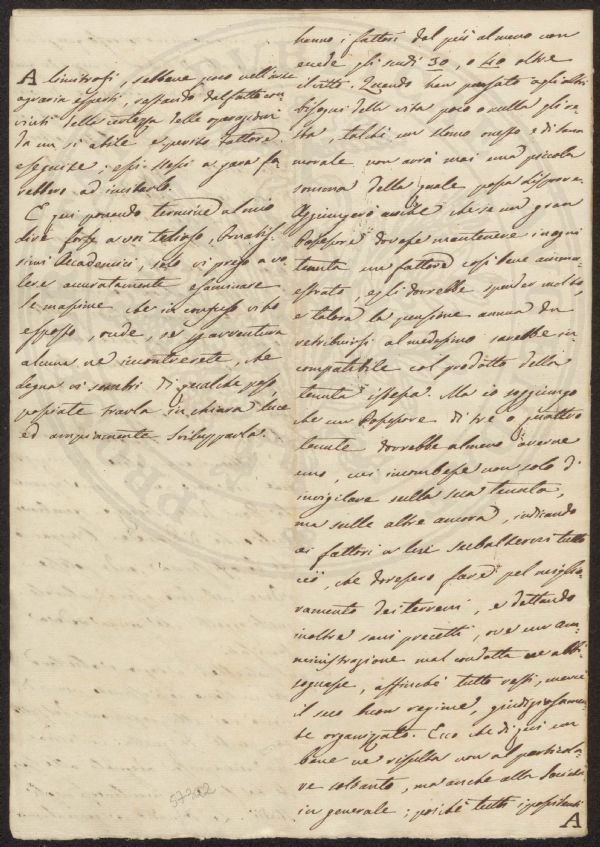 hanno i fattori dal più al meno non
ecede gli scudi 30, o 40 oltre
il vitto. Quando han pensato agli altri
bisogni della vita poco o nulla gli re-
sta, talchè un Uomo onesto e di buona
morale non avrà mai una piccola
somma della quale possa disporre.
Aggiungerò anche che se un gran
Possessore dovesse mantenere in ogni
tenuta un fattore così bene amma-
estrato, egli dovrebbe spender molto,
e talora la pensione annua da
retribuirsi al medesimo sarebbe in-
compatibile col prodotto della
tenuta istessa. Ma io soggiungo
che un Possessore di tre o quattro
tenute dovrebbe almeno averne
uno, cui incombesse non solo d'
invigilare sulla sua tenuta,
ma sulle altre ancora, indicando
ai fattori a lui subalterni tutto
ciò, che dovessero fare pel miglio-
ramento dei terreni, e dettando
inoltre sani precetti, ove un am-
ministrazione mal condotta ne abbi-
sognasse, affinchè tutto resti, mercè
il suo buon regime, giudiziosamen-
te organizzato. Ecco che di qui un
bene ne risulta non al particola-
re soltanto, ma anche alla Società
in generale; poichè tutti i possidenti
A
A limitrofi, sebbene poco nell'arte
agraria esperti, restando del fatto con-
vinti della certezza delle operazioni
da un sì abile e perito fattore
eseguite; essi stessi a gara fa-
rebbero ad imitarlo.
E qui ponendo termine al mio
dire forse a voi tedioso, Ornatis-
simi Accademici, solo vi prego a vo-
lere accuratamente esaminare
le massime che in complesso vi ho
esposto, onde, se per avventura
alcuna ne incontrerete, che
degna vi sembri di qualche peso,
possiate trarla in chiara luce
ed ampiamente svilupparla.